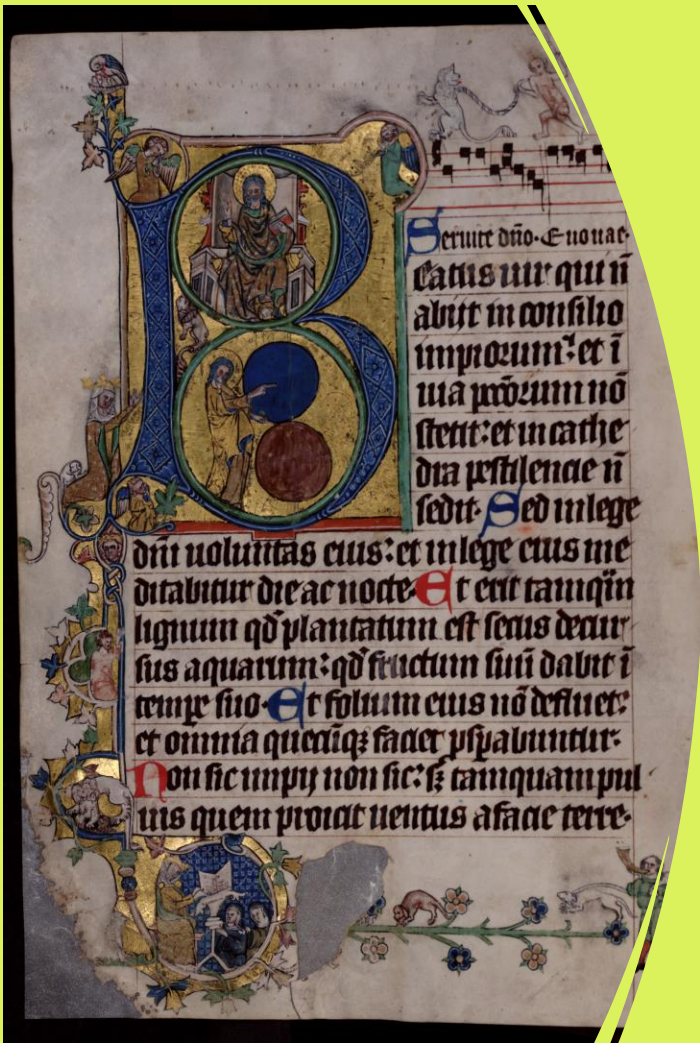 Seruite dn̄o. Euouae.
Beatus uir qui n̄
abijt in consilio
impiorum: et ī
uia pccōrum nō
stetit: et in cathe
dra pestilencie n̄
sedit. Sed in lege
dm̄i uoluntas eius: et in lege eius me
ditabitur die ac nocte. Et erit tamqᷓm
lignum qd̄ plantatum est secus decur
sus aquarum: qd̄ fructum suū dabit ī
temp̱e suo. Et folium eius nō defluet:
et omnia quecūqꝫ faciet ꝓsꝑabuntur.
Non sic impij non sic: sꝫ tamquam pul
uis quem proicit uentus a facie terre.